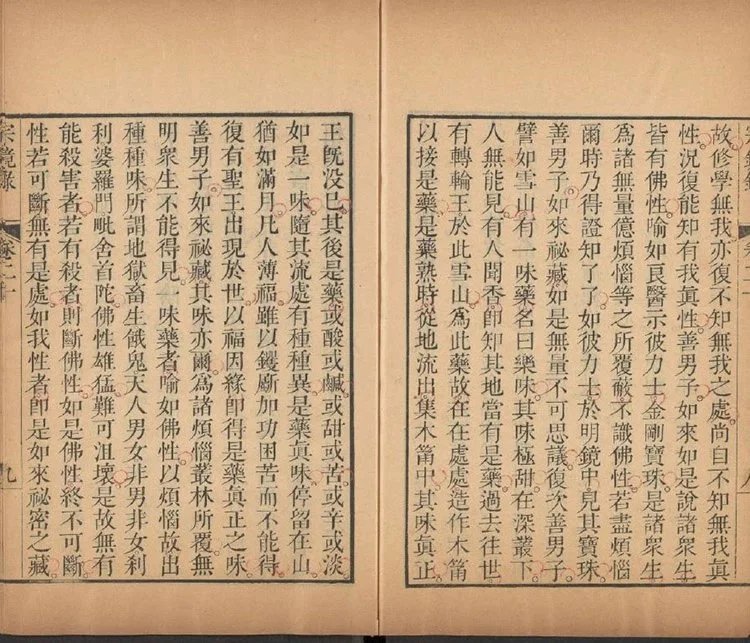 故修學無我亦復不知無我之處尚自不知無我眞
性況復能知有我眞性善男子如來如是說諸衆生
皆有佛性喻如良醫示彼力士金剛寶珠是諸衆生
爲諸無量億煩惱等之所覆蔽不識佛性若盡煩惱
爾時乃得證知了了如彼力士於明鏡中見其寶珠
善男子如來祕藏如是無量不可思議復次善男子
譬如雪山有一味藥名曰樂味其味極甜在深叢下
人無能見有人聞香卽知其地當有是藥過去往世
有轉輪王於此雪山爲此藥故在在處處造作木筩
以接是藥是藥熟時從地流出集木筩中其味眞正
王旣没已其後是藥或酸或鹹或甜或苦或辛或淡
如是一味隨其流處有種種異是藥眞味停留在山
猶如滿月凡人薄福雖以钁斸加功困苦而不能得
復有聖王出現於世以福因緣卽得是藥眞正之味
善男子如來祕藏其味亦爾爲諸煩惱叢林所覆無
明衆生不能得見一味藥者喻如佛性以煩惱故出
種種味所謂地獄畜生餓鬼天人男女非男非女刹
利婆羅門毗舍首陀佛性雄猛難可沮壞是故無有
能殺害者若有殺者則斷佛性如是佛性終不可斷
性若可斷無有是處如我性者卽是如來祕密之藏
宗鏡錄
九